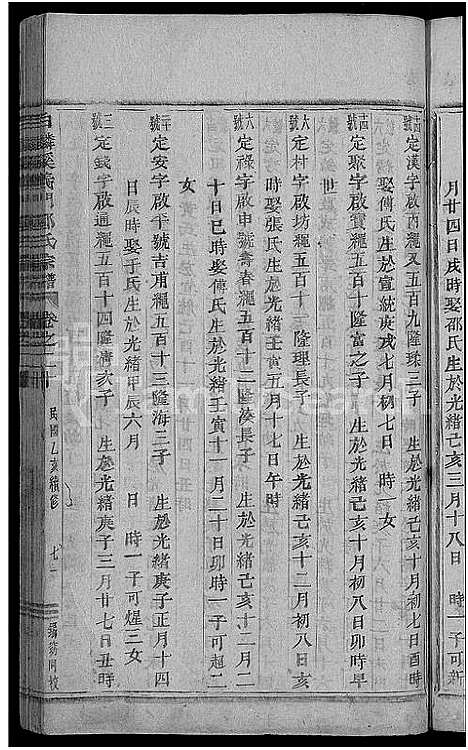 月廿四日戌時娶邵氏生於光緒己亥三月十八日　時一子可新
十四號定漢字啟內龍又五百九隆珠三子　生於光緒己亥十月初七日酉時
娶傅氏生於宣統庚戌七月初七日　時一女
十四號定聚字啟寶龍五百十隆富之子　生於光緒己亥十月初八日卯時早
世
六號定村字啟坊龍五百十一隆理長子　生於光緒己亥十二月初八日亥
時娶張氏生於光緒壬寅五月十七日午時
六號定祿字啟申號壽春龍五百十二隆 長子　生於光緒己亥十二月二
十日巳時娶傅氏生於光緒壬寅十一月二十日卯時一子可起二
女
二號定安字啟平號吉甫龍五百十三隆海三子　生於光緒庚子正月十四
日辰時娶于氏生於光緒甲辰六月　日　時一子可煋三女
三號定錢字啟通龍五百十四隆 次子　生於光緒庚子三月廿七日丑時
白麟溪義門鄭氏宗譜　卷之二十　民國乙亥續修　七